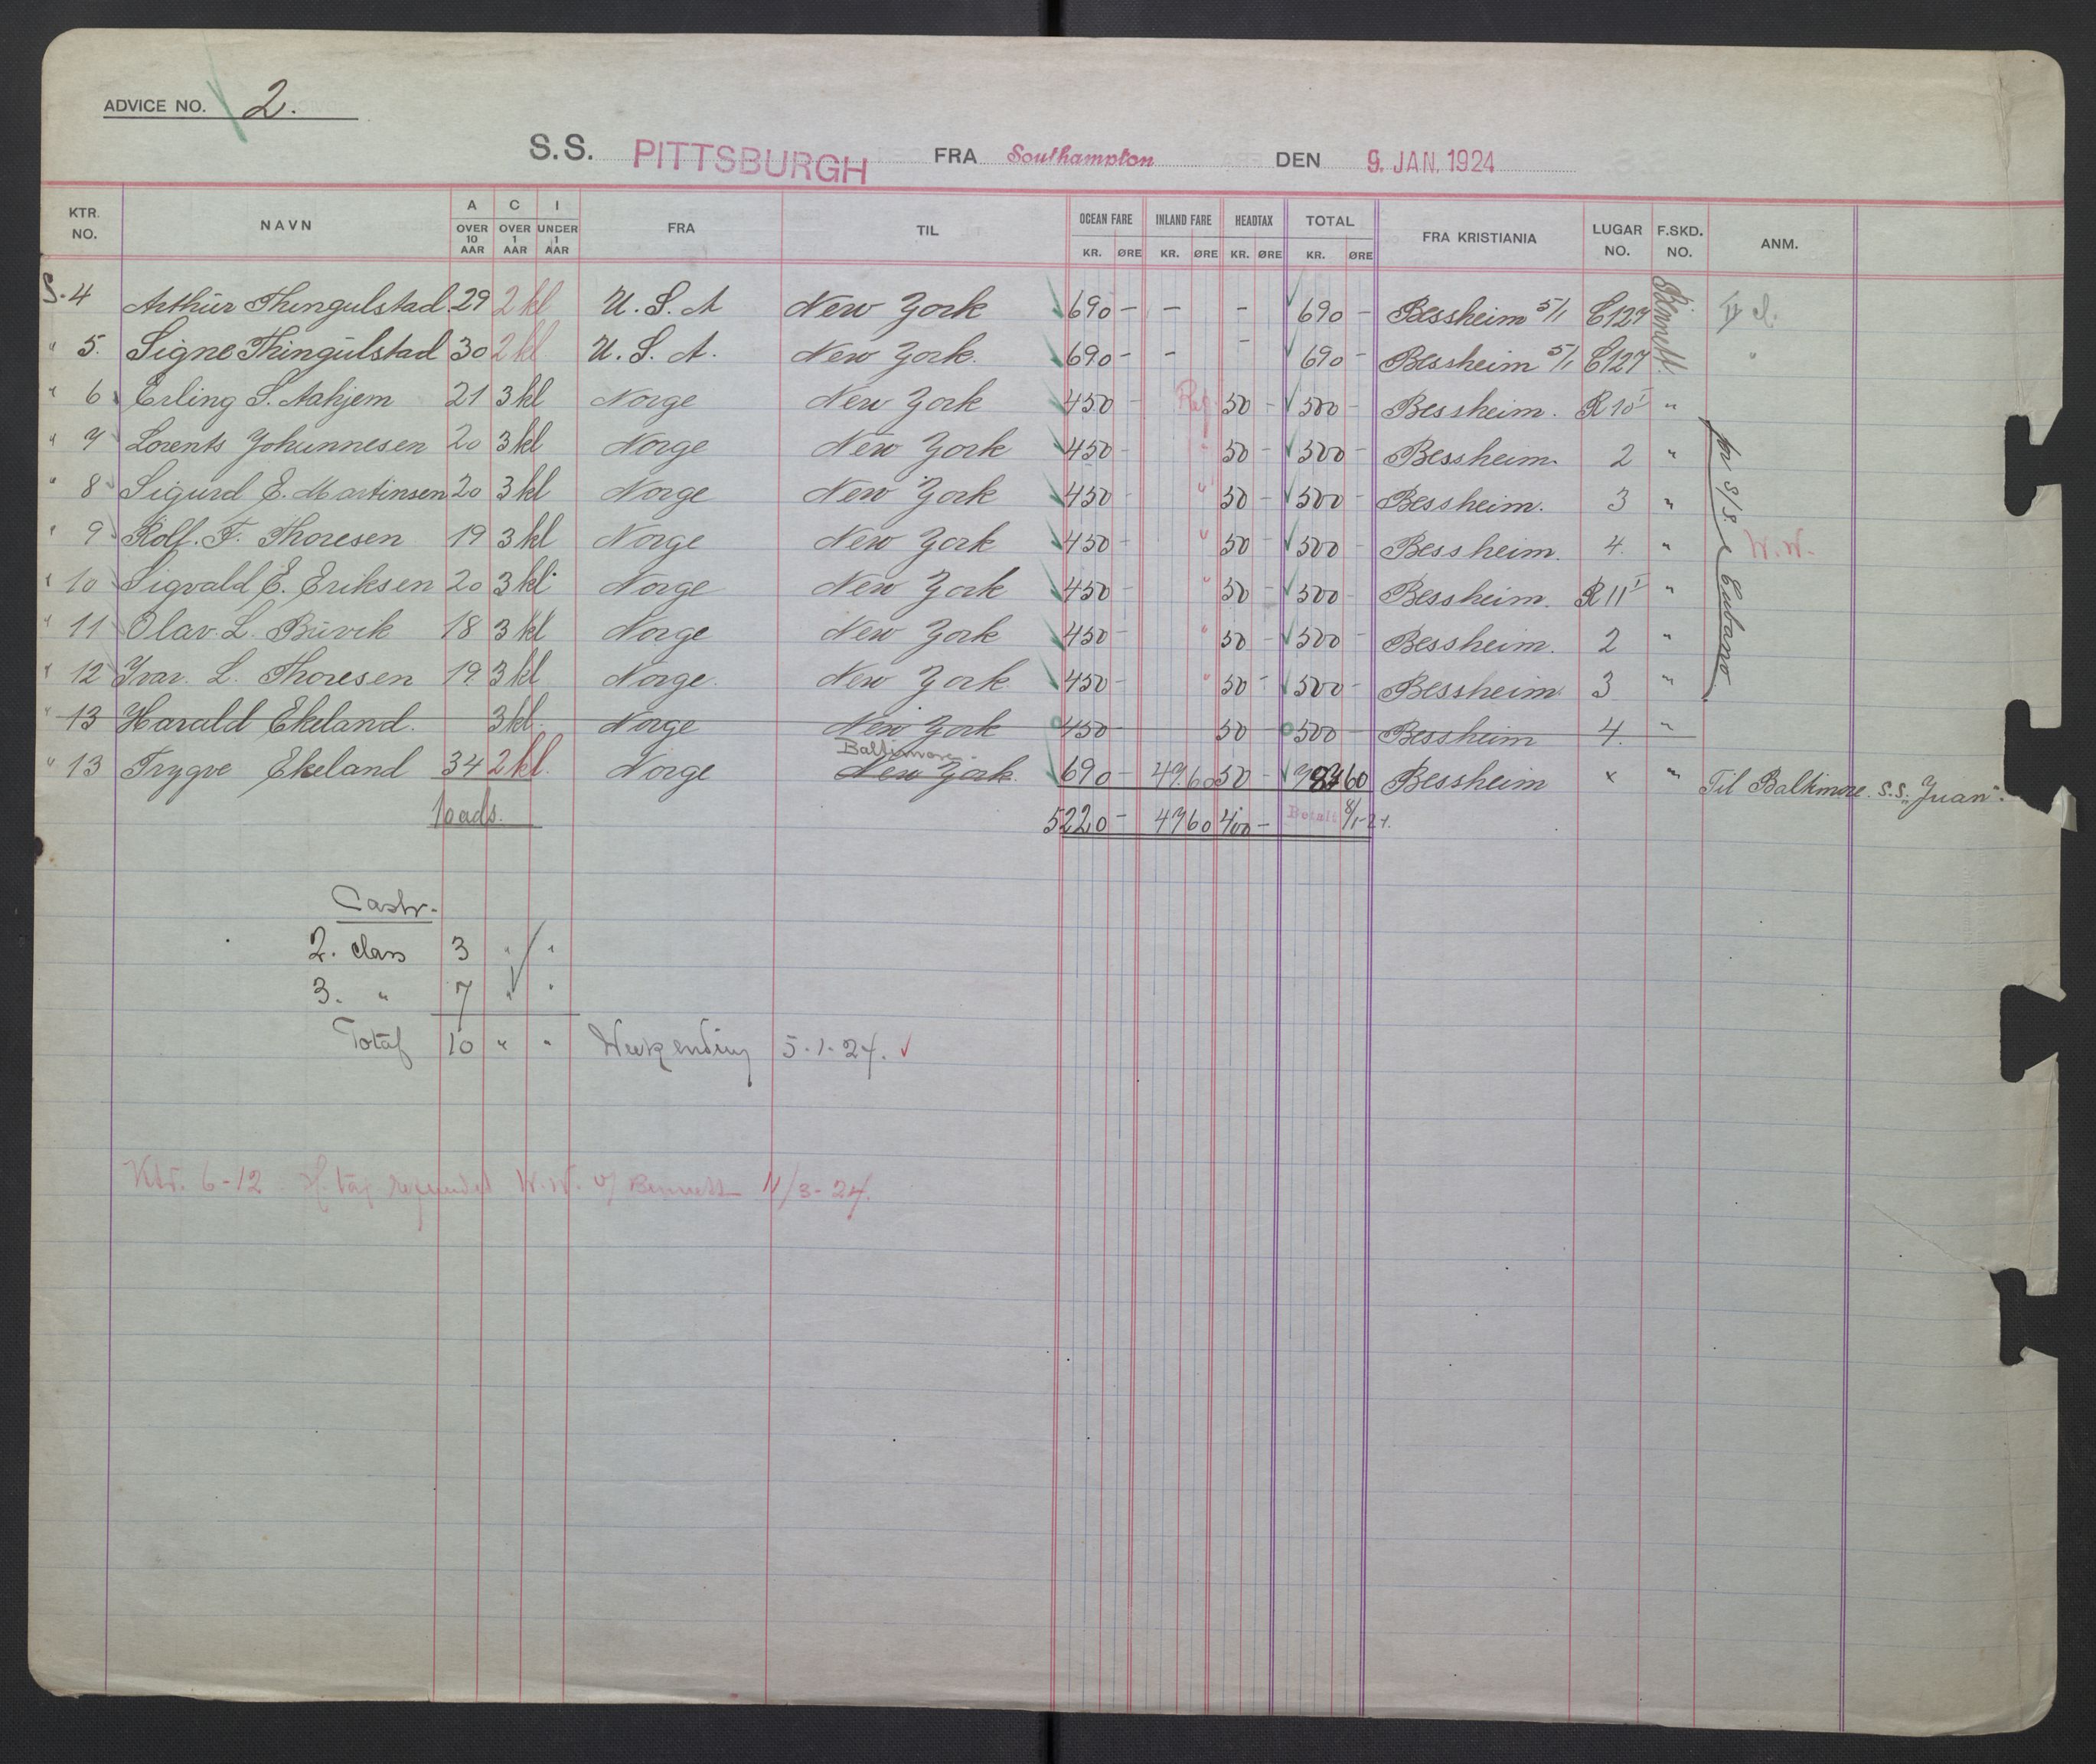 ADVICE NO. 2.
S.S. PITTSBURGH FRA Southampton DEN 9. JAN. 1924
KTR. NO. NAVN A OVER 10 AAR C OVER 1 AAR I UNDER 1 AAR FRA TIL OCEAN FARE KR. ØRE INLAND FARE KR. ØRE HEADTAX KR. ØRE TOTAL KR. ØRE FRA KRISTIANIA LUGAR NO. F.SKD. NO. ANM.
S. 4 Arthur Thingulstad 29 2 kl U.S.A New York 690 - - - 690 - Bessheim 5/1 C127 Bennett
" 5. Signe Thingulstad 30 2 kl U.S.A. New York. 690 - - - 690 - Bessheim 5/1 C127 "
" 6 Erling S. Aahjem 21 3 kl Norge New York 450 - Ref. 50 - 500 - Bessheim. R 10 I "
" 7 Lorents Johannesen 20 3 kl Norge New York 450 - " 50 - 500 - Bessheim. 2 "
" 8 Sigurd E. Martinsen 20 3 kl Norge New York 450 - " 50 - 500 - Bessheim. 3 "
" 9 Rolf. F. Thoresen 19 3 kl Norge New York 450 - " 50 - 500 - Bessheim. 4. " W.W.
" 10 Sigvald E. Eriksen 20 3 kl Norge New York 450 - " 50 - 500 - Bessheim. R 11 I "
" 11 Olav. L. Buvik 18 3 kl Norge New York 450 - " 50 - 500 - Bessheim. 2 "
" 12 Ivar. L. Thoresen 19 3 kl Norge. New York 450 - " 50 - 500 - Bessheim 3 "
pr S/S. Cubano.
" 13 Harald Ekeland. 3 kl. Norge New York 450 50 500 Bessheim 4. "
Baltimore.
" 13 Trygve Ekeland 34 2 kl. Norge New York. 690 - 49 60 50 - 60 Bessheim x " Til Baltimore. S.S. "Juan".
10 ads. 5220 - 49 60 400 - Betalt 8/1-24.
2. class 3 " "
3. " 7 " "
Total 10 " " Week ending 5.1.24.
Ktr. 6-12 H. tax refunded W.W. Bennett 11/3-24.